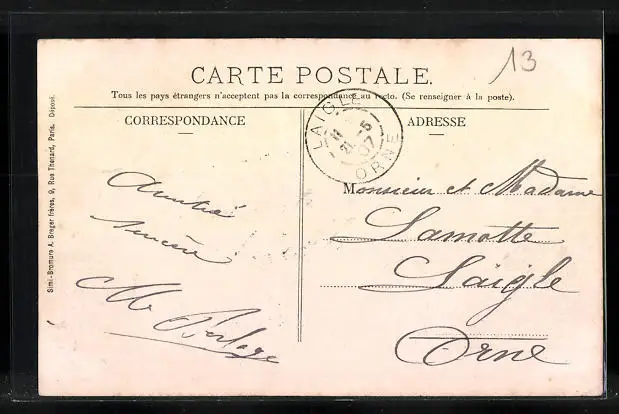 13
CARTE POSTALE.
Tous les pays étrangers n'acceptent pas la correspondance au recto. (Se renseigner à la poste).
CORRESPONDANCE
ADRESSE
LAIGLE
21 -5
07
ORNE
Simi-Bromure A. Breger frères, 9, Rue Thénard, Paris. Déposé.
Amitié
sincère
M
Monsieur et Madame
Lamotte
Laigle
Orne